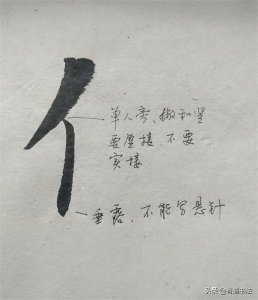 亻
单人旁、撇和竖
要虚接,不要
实接
垂露,不能写悬针
头条@青墨书法